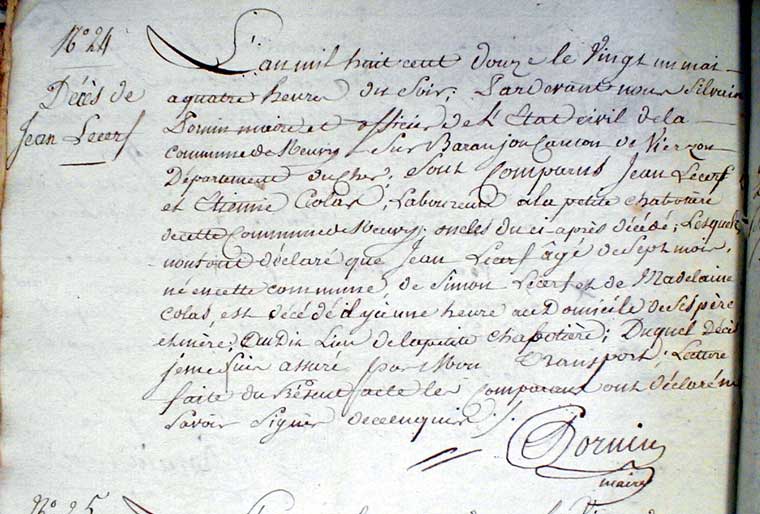 N° 24
Décès de
Jean Lecerf
L'an mil huit cent douze le vingt un mai
a quatre heures du soir; Pardevant nous Silvain
Dornin maire et officier de l'Etat civil de la
commune de Neuvy sur Baranjon Canton de Vierzon
Département du Cher, Sont Comparus Jean Lecerf
et Etienne Colas, Laboureurs a la petite chabotière
de cette Commune de Neuvy; oncles du ci-après décédé; Lesquels
nous ont déclaré que Jean Lecerf âgé de Sept mois,
né en cette commune de Simon Lecerf et de Madelaine
Colas, est décédé il y a une heure au Domicile de Ses père
et mère, Audit Lieu de la petite chabotière; Duquel décès
je me Suis assuré par Mon transport; Lecture
faite du Présent acte les Comparans ont déclaré ne
Savoir Signer de ce enquis ./.
Dornin
maire
N° 25